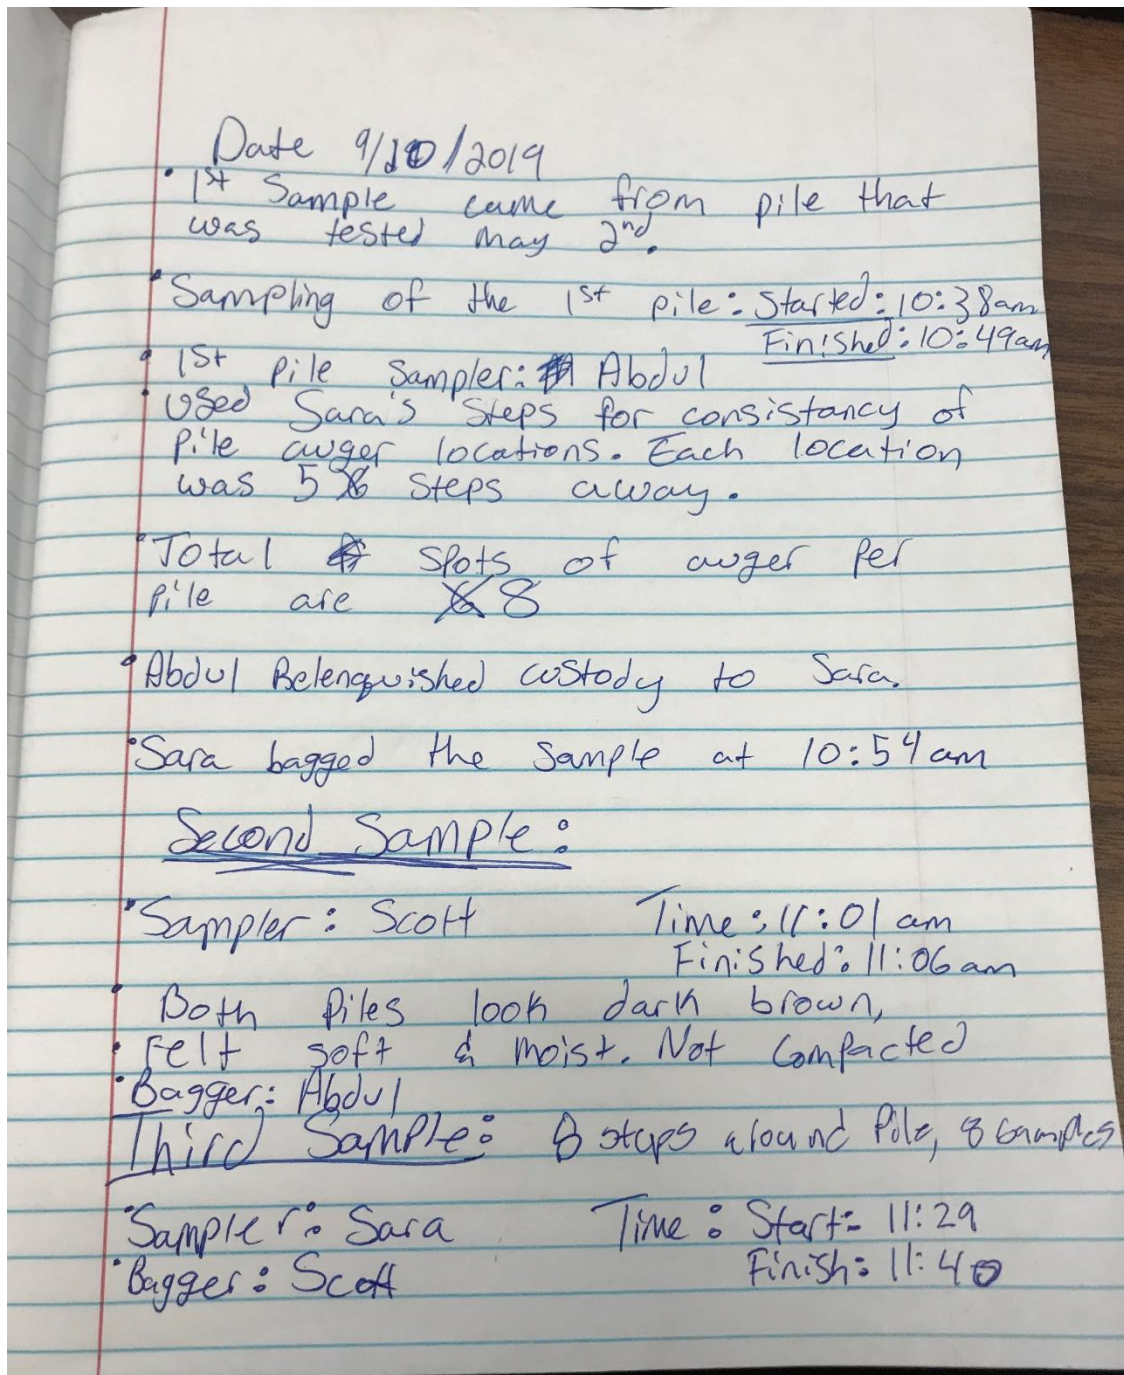 Date 9/10/2019
• 1st Sample came from pile that
was tested may 2nd.
• Sampling of the 1st pile: Started: 10:38am
Finished: 10:49am
• 1st pile Sampler: Abdul
• Used Sara's Steps for consistancy of
pile auger locations. Each location
was 5 steps away.
• Total spots of auger per
pile are 8
• Abdul Relenquished custody to Sara.
• Sara bagged the sample at 10:54am
Second Sample:
• Sampler: Scott Time: 11:01 am
Finished: 11:06am
• Both piles look dark brown,
• Felt soft & moist. Not compacted
• Bagger: Abdul
Third Sample: 8 steps around Pile, 8 samples
• Sampler: Sara Time: Start: 11:29
• Bagger: Scott Finish: 11:40